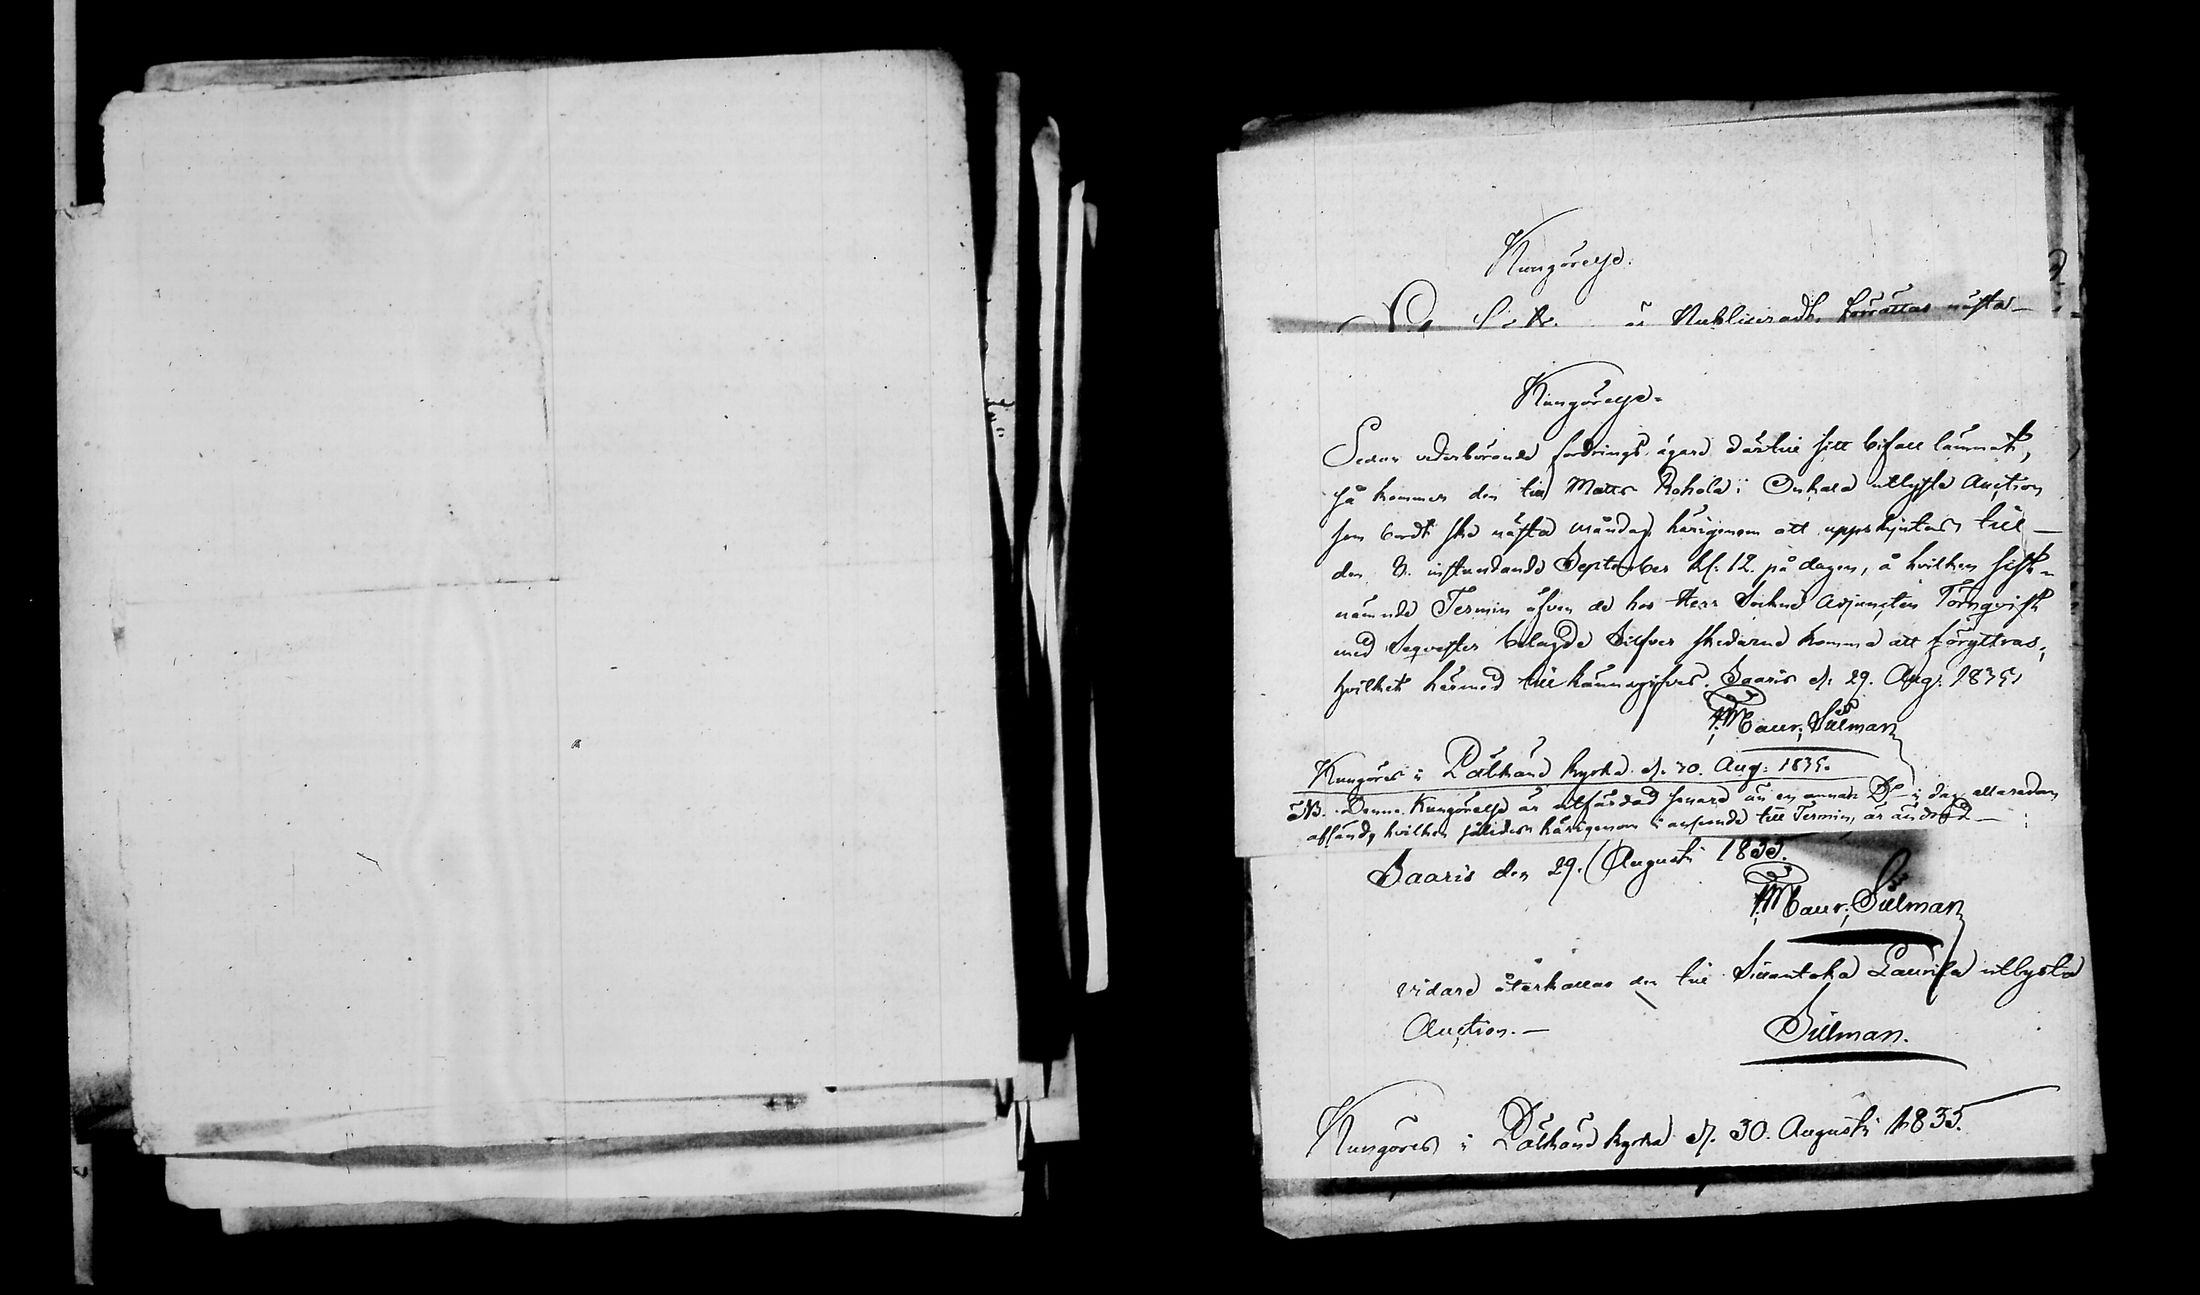 Kungörelse.
är Publiceradt, förrättas nästa
Kungörelse.
Sedan vederbörande fordrings ägare därtill sitt bifall lämnat,
så kommer den till Matts Rohola i Onkala utlyste Auction
som bordt ske nästa måndag härigenom att uppskjutas till
den 8. instundande September Kl: 12. på dagen, å hvilken sist-
nämnde Termin äfven de hos Herr Sockne Adjuncten Törnqvist
med Seqvester belagde Silfver skedarne komma att föryttras;
hvilket härmed till kännagifves. Saaris d. 29. Aug. 1835.
Maur: Silman
Kungöres i Pälkäne kyrka d. 30. Aug: 1835.
NB. Denna Kungörelse är utfärdad senare än en annan Do i dag allaredan
afsänd, hvilken således härigenom i anseende till Termin, är ändrad
Saaris den 29. Augusti 1835.
Maur: Silman
vidare återkallas den till Laurila utlysta
Auction.
Silman.
Kungöres i Pälkäne kyrka d. 30. Augusti 1835.